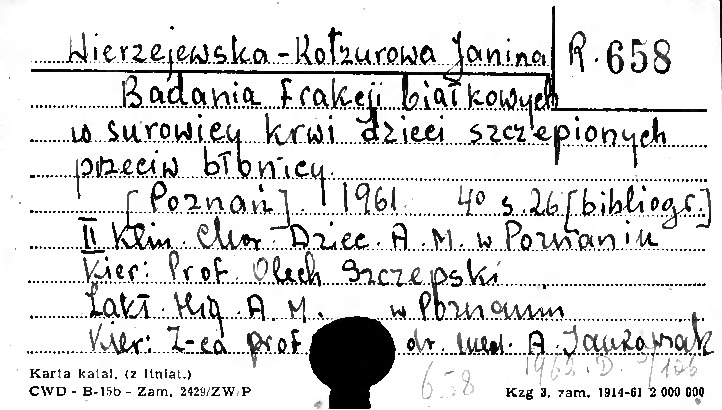 Wierzejewska-Kołzurowa Janina R. 658
Badania frakcji białkowych
w surowicy krwi dzieci szczepionych
przeciw błonicy.
[Poznań] 1961 4° s. 26 [bibliogr.]
II Klin. Chor. Dziec. A. M. w Poznaniu
Kier: Prof. Olech Szczepski
Zakł. Hig. A. M. w Poznaniu
Kier: Z-ca prof. dr. med. A.
658 1962. D.
Karta katal. (z liniat.)
CWD - B-15b - Zam. 2429/ZW/P Kzg 3, zam. 1914-61 2 000 000